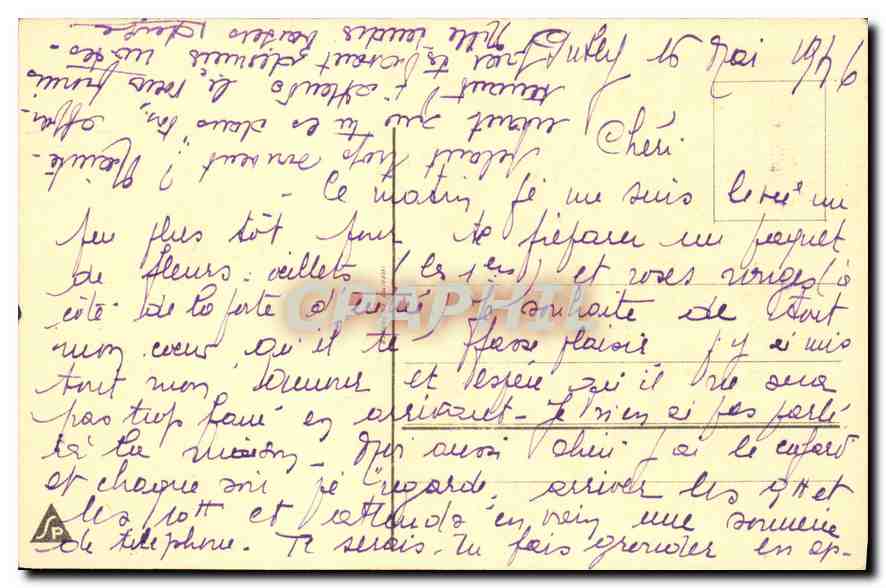 16 Mai 1946
Chéri
Ce matin je me suis levée un
peu plus tôt pour te préparer un paquet
de fleurs : œillets (les 1ers) et roses rouges (à
côté de la porte d'entrée Je souhaite de tout
mon cœur qu'il te fasse plaisir j'y ai mis
tout mon amour et espère qu'il ne sera
pas trop fané en arrivant - Je n'en ai pas parlé
à la maison - Moi aussi chéri j'ai le cafard
et chaque soir je regarde arriver les 9H et
les 10H et attends en vain une sonnerie
de téléphone. Te serais-tu fais gronder en ap-
pelant trop souvent ? Mainte-
nant que tu es dans
j'attends le
désormais
Mille tendres baisers
CPAPHIL
SP